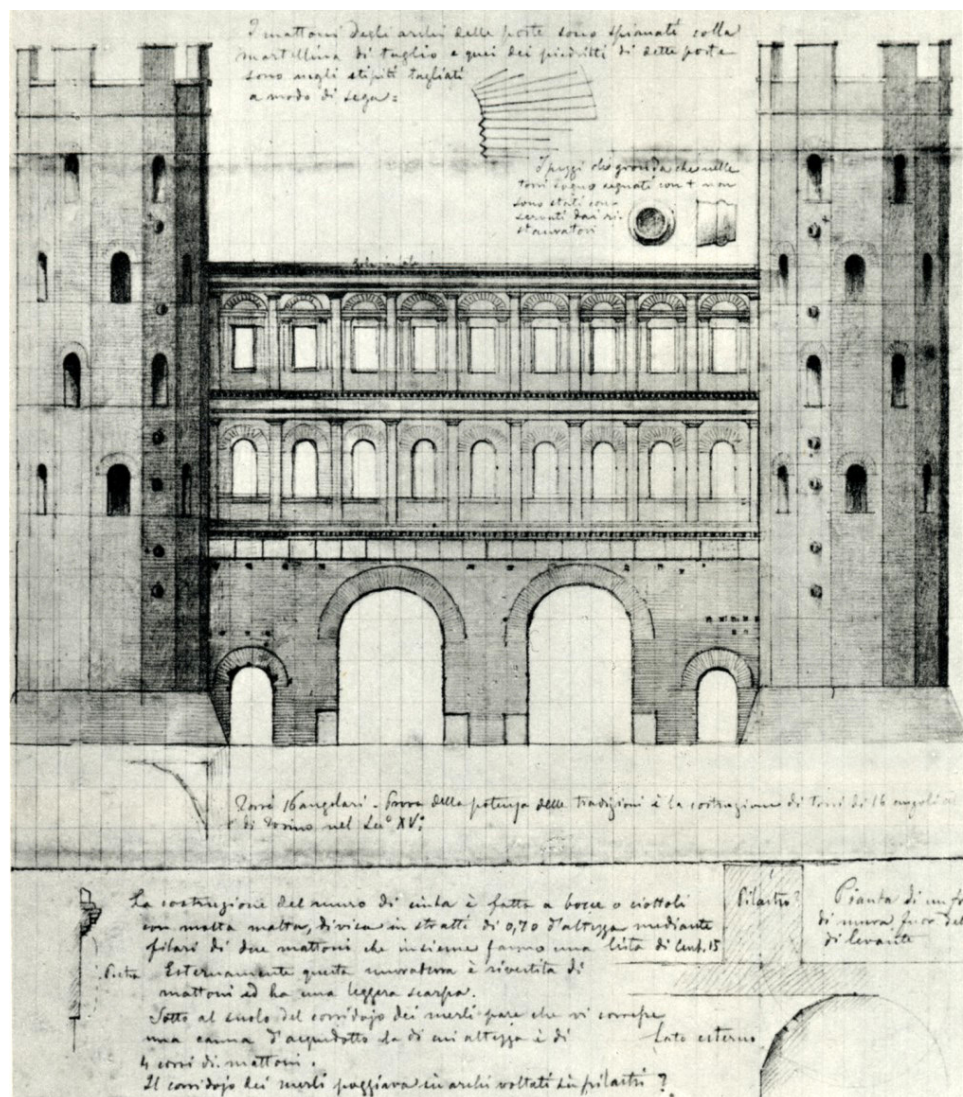 I mattoni degli archi delle porte sono spianati colla
martellina di taglio e quei dei piedritti di dette porte
sono negli stipiti tagliati
a modo di sega =
I pezzi di gronda che nelle
torri sono segnati con + non
sono stati con-
servati dai ri-
stauratori
Torri 16angolari - Prova della potenza delle tradizioni è la costruzione di torri di 16 angoli
di Torino nel Sec° XV°
La costruzione del muro di cinta è fatta a bocce o ciottoli
con molta malta, divisa in strati di 0,70 d'altezza mediante
filari di due mattoni che insieme fanno una lista di Cent. 15
Pietra
Esternamente questa muratura è rivestita di
mattoni ed ha una leggera scarpa.
Sotto al suolo del corridojo dei merli pare che vi corresse
una canna d'acquedotto la di cui altezza è di
4 corsi di mattoni.
Il corridojo dei merli poggiava su archi voltati su pilastri ?
Pilastro ?
Pianta di un
di mura fuori
di levante
Lato esterno